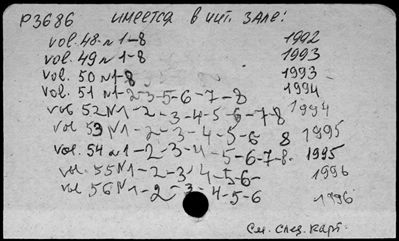 P3686 имеется в чит. зале:
vol. 48 N 1-8 1992
vol. 49 N 1-8 1993
vol. 50 N 1-8 1993
vol. 51 N 1-2-3-5-6-7-8 1994
vol 52 N1-2-3-4-5-6-7-8 1994
vol 53 N1-2-3-4-5-6 8 1995
vol. 54 N1-2-3-4-5-6-7-8. 1995
vol. 55 N1-2-3-4-5-6- 1996
vol 56 N1-2-3-4-5-6 1996
См. след. карт.